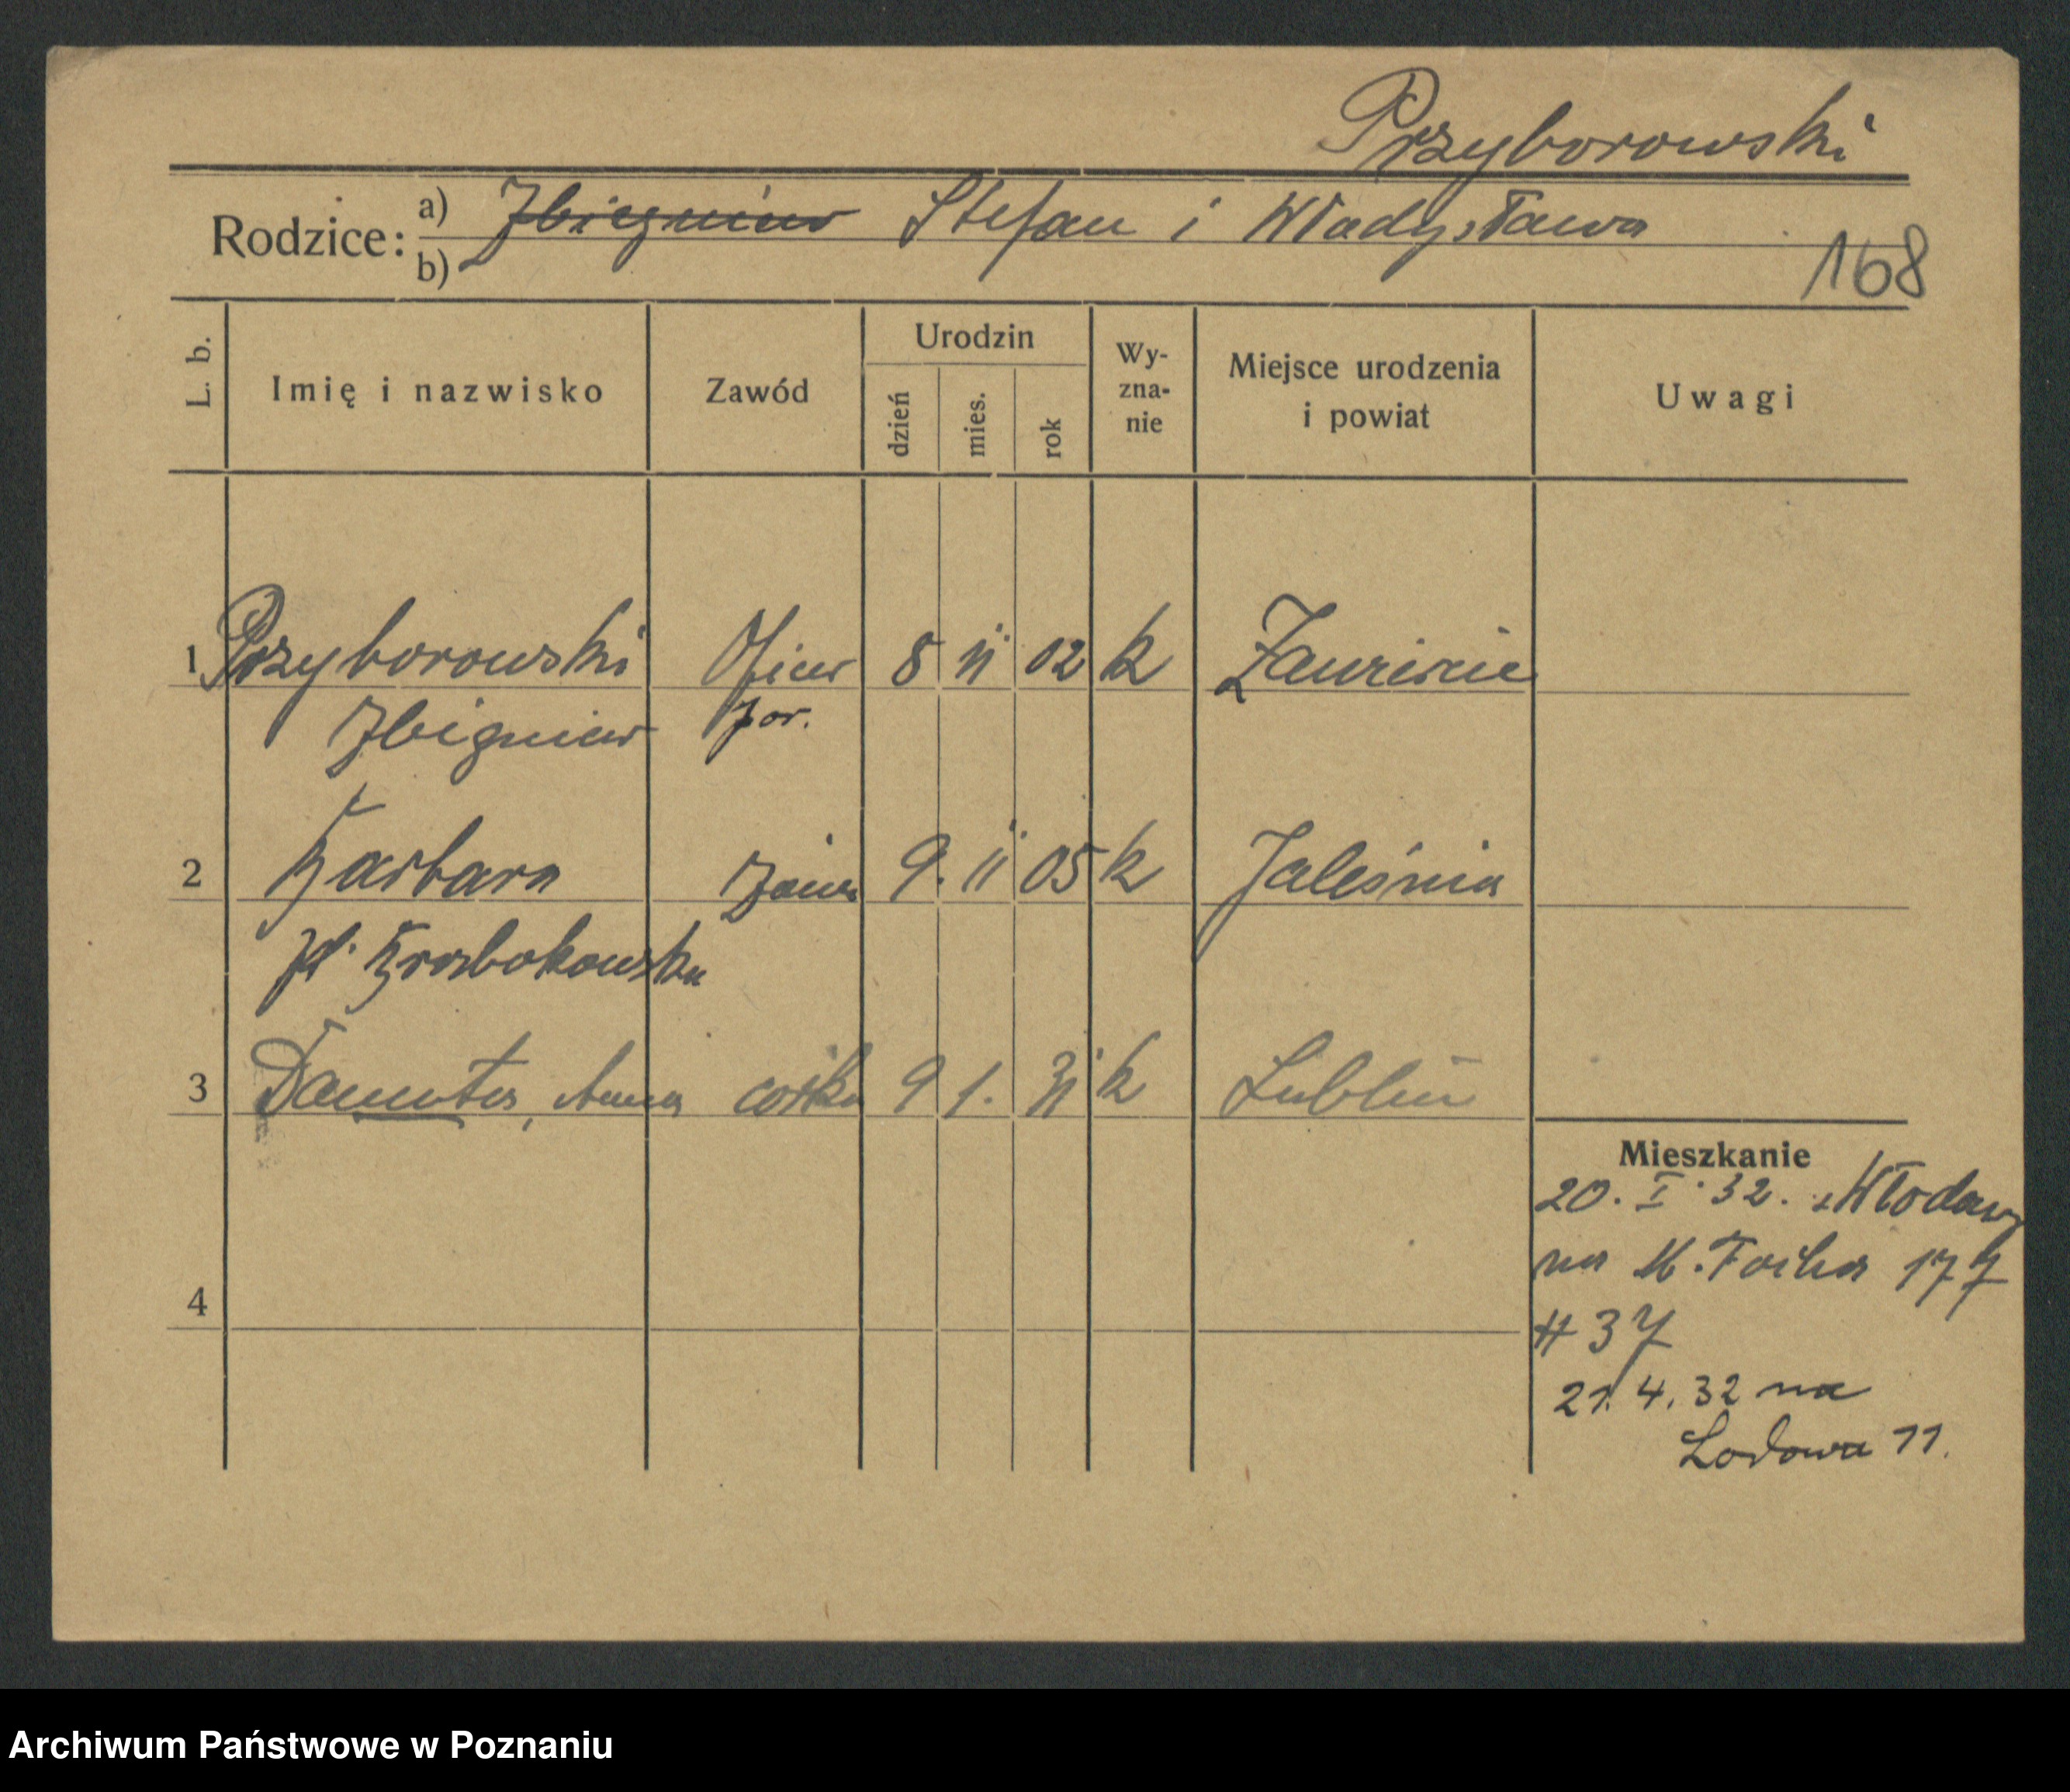 Przyborowski
Rodzice: a) Zbigniew Stefan i Władysława
b)
168
L. b. Imię i nazwisko Zawód Urodzin dzień mies. rok Wy-zna-nie Miejsce urodzenia i powiat Uwagi
1 Przyborowski 8 02 k
Zbigniew por.
2 Barbara 9. 05 k Jaleśnia
3 Danuta, Anna córka 9 1. 31 k Lublin
Mieszkanie
20. I. 32. z Włodawy
na M. Focha 177
21. 4. 32 na
4
Lodowa 11.
Archiwum Państwowe w Poznaniu